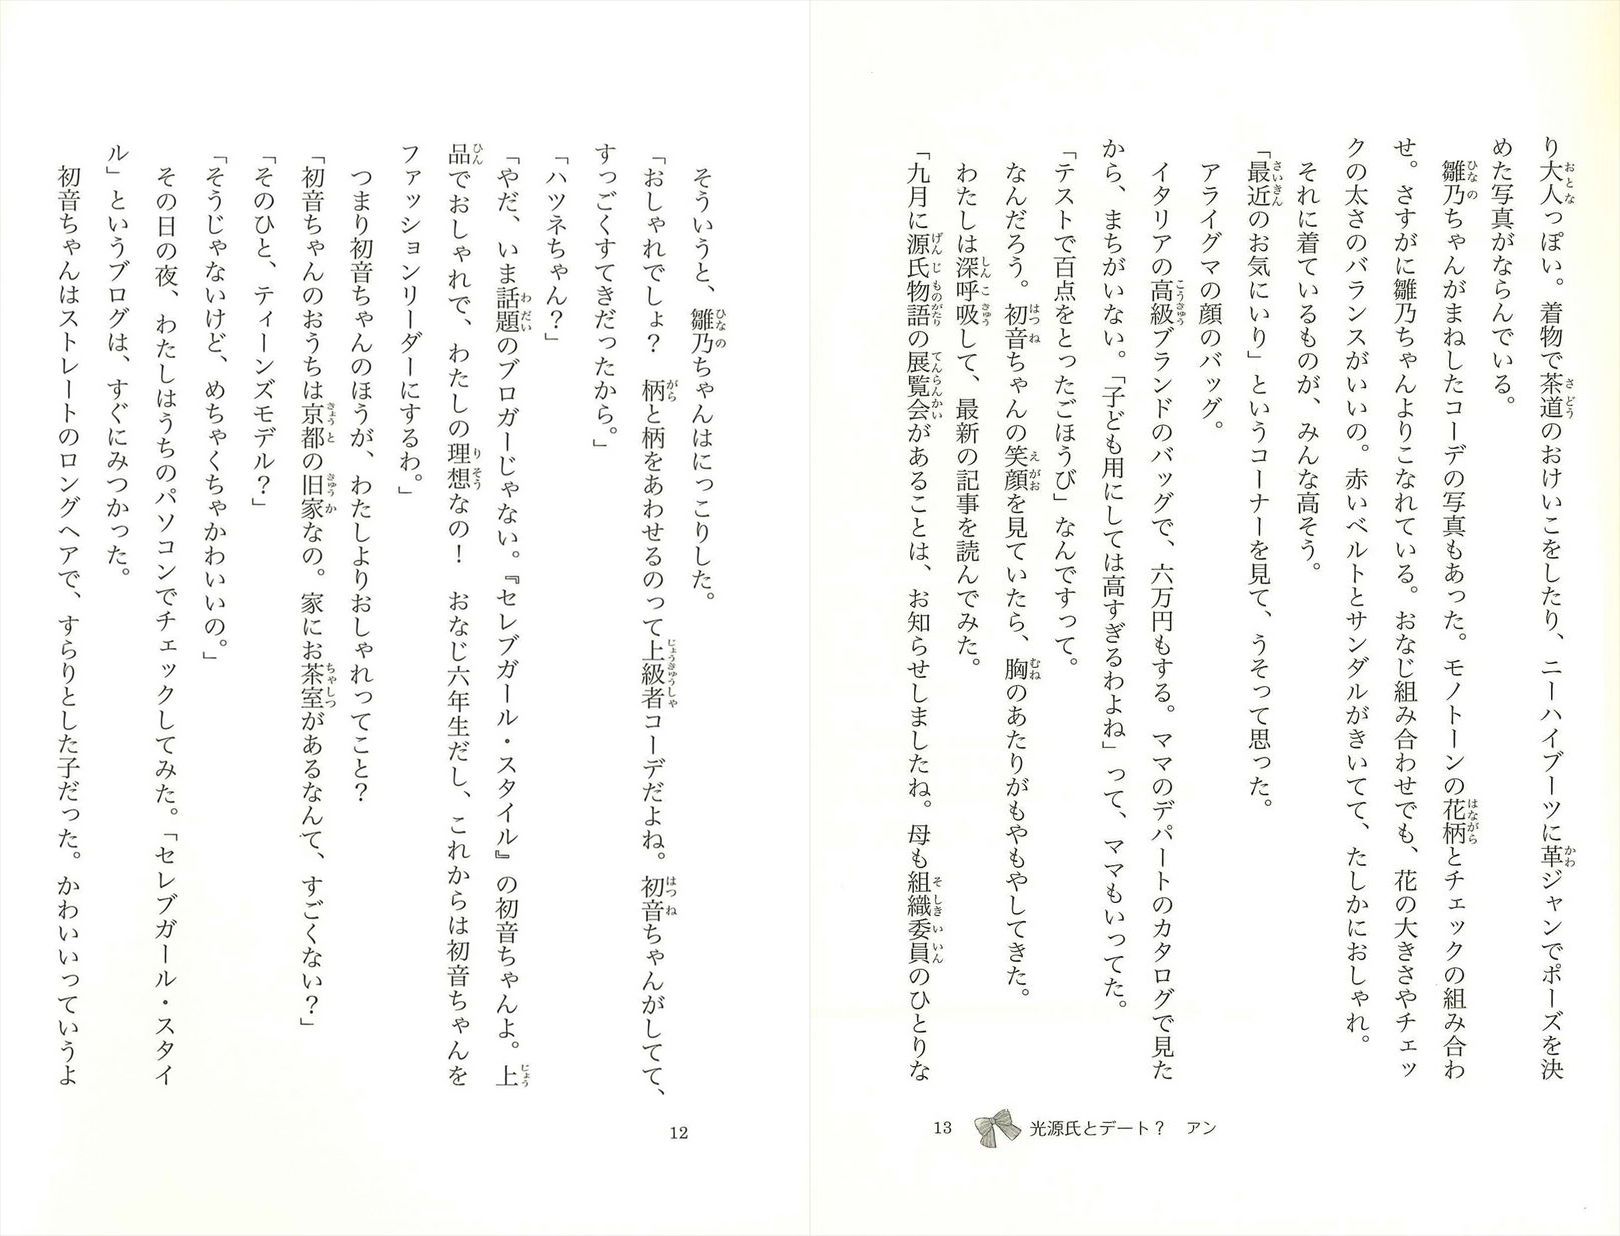 そういうと、雛乃ちゃんはにっこりした。
「おしゃれでしょ？　柄と柄をあわせるのって上級者コーデだよね。初音ちゃんがしてて、
すっごくすてきだったから。」
「ハツネちゃん？」
「やだ、いま話題のブロガーじゃない。『セレブガール・スタイル』の初音ちゃんよ。上
品でおしゃれで、わたしの理想なの！　おなじ六年生だし、これからは初音ちゃんを
ファッションリーダーにするわ。」
つまり初音ちゃんのほうが、わたしよりおしゃれってこと？
「初音ちゃんのおうちは京都の旧家なの。家にお茶室があるなんて、すごくない？」
「そのひと、ティーンズモデル？」
「そうじゃないけど、めちゃくちゃかわいいの。」
その日の夜、わたしはうちのパソコンでチェックしてみた。「セレブガール・スタイ
ル」というブログは、すぐにみつかった。
初音ちゃんはストレートのロングヘアで、すらりとした子だった。かわいいっていうよ
12
り大人っぽい。着物で茶道のおけいこをしたり、ニーハイブーツに革ジャンでポーズを決
めた写真がならんでいる。
雛乃ちゃんがまねしたコーデの写真もあった。モノトーンの花柄とチェックの組み合わ
せ。さすがに雛乃ちゃんよりこなれている。おなじ組み合わせでも、花の大きさやチェッ
クの太さのバランスがいいの。赤いベルトとサンダルがきいてて、たしかにおしゃれ。
それに着ているものが、みんな高そう。
「最近のお気にいり」というコーナーを見て、うそって思った。
アライグマの顔のバッグ。
イタリアの高級ブランドのバッグで、六万円もする。ママのデパートのカタログで見た
から、まちがいない。「子ども用にしては高すぎるわよね」って、ママもいってた。
「テストで百点をとったごほうび」なんですって。
なんだろう。初音ちゃんの笑顔を見ていたら、胸のあたりがもやもやしてきた。
わたしは深呼吸して、最新の記事を読んでみた。
「九月に源氏物語の展覧会があることは、お知らせしましたね。母も組織委員のひとりな
13 光源氏とデート？　アン